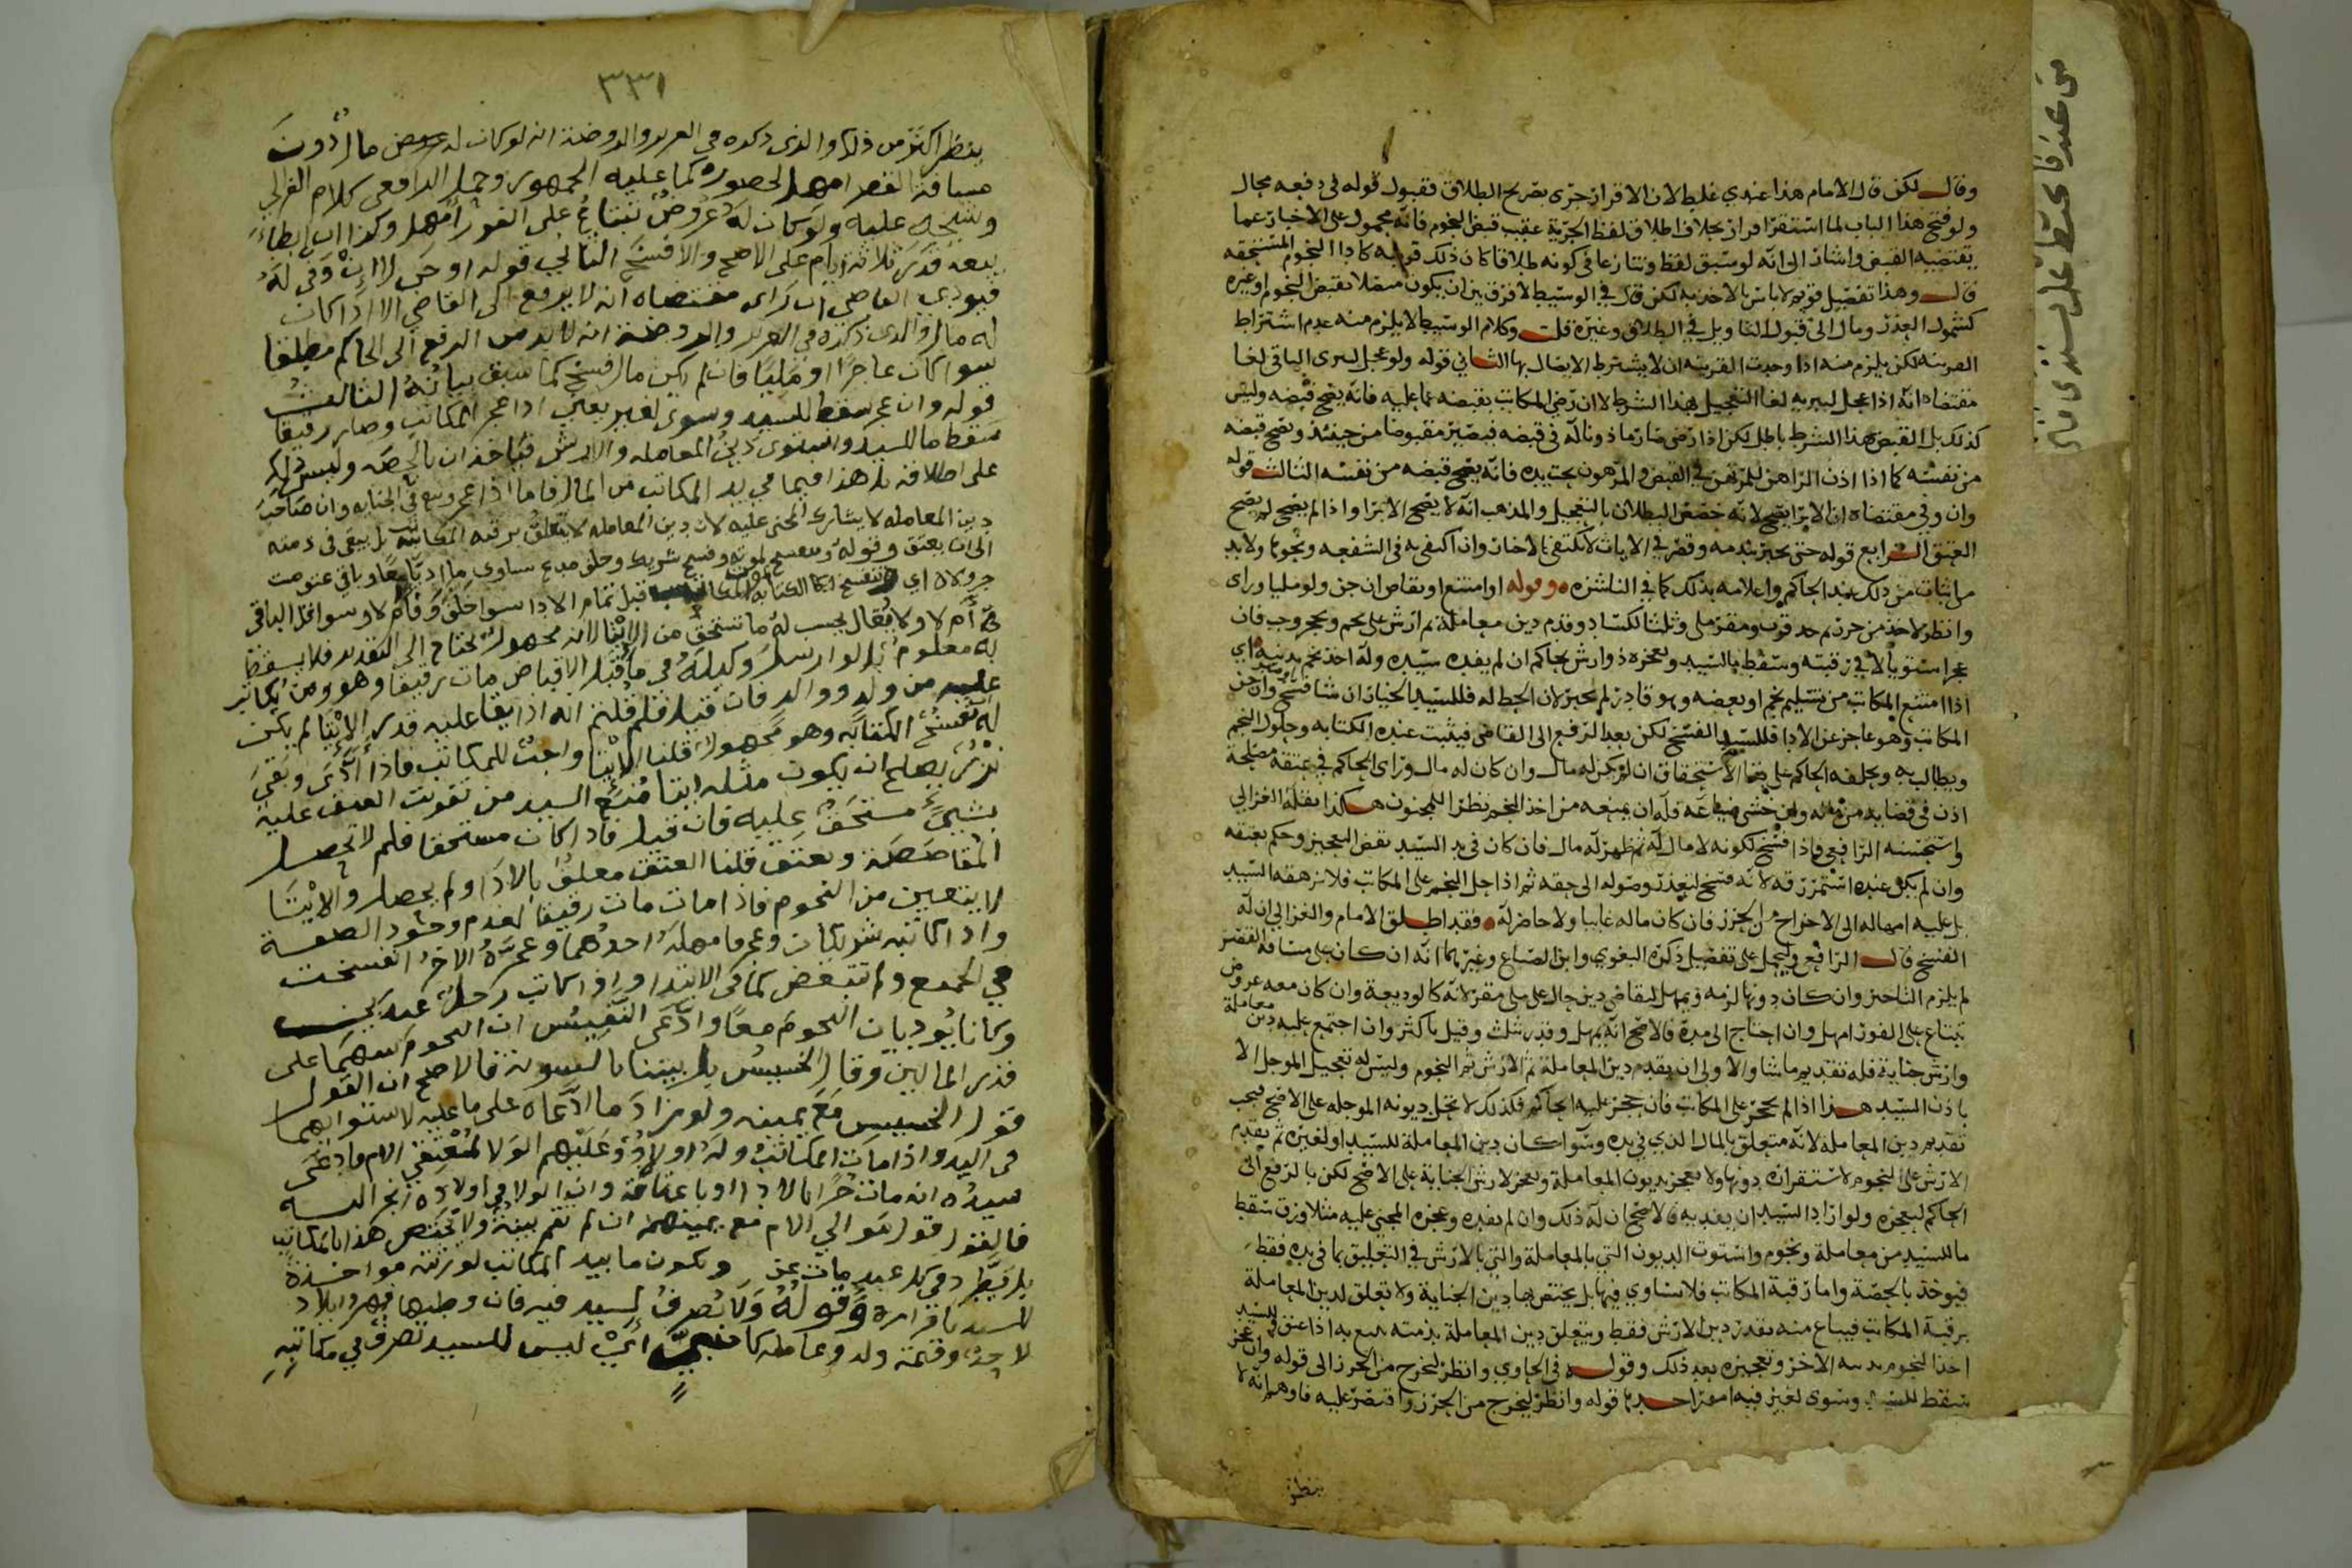 وقال لكن قال الامام هذا عندي غلط لان الاقرار جرى بصريح الطلاق فقبول قوله في دفعه محال
ولو فتح هذا الباب لما استقر اقرار بخلاف اطلاق لفظ الحرية عقيب قبض النجوم فانه محمول على الاخبار عما
يقتضيه القبض واشار الى انه لو سبق لفظ وتنازعا في كونه طلاقا كان ذلك قرينة كاداا النجوم المستحقه
قال وهذا تفصيل قويم لا باس بالاخذ به لكن قال في الوسيط لا فرق بين ان يكون متصلا بقبض النجوم او غيره
كشمول العذر ومال الى قبول التاويل في الطلاق وغيره قلت وكلام الوسيط لا يلزم منه عدم اشتراط
القرينه لكن يلزم منه اذا وجدت القرينه ان لا يشترط الاتصال بها الثاني قوله ولو عجل ليبرى الباقي لغا
مقتضاه انه اذا عجل ليبريه لغا التعجيل بهذا الشرط لا ان رضي المكاتب بقبضه عما عليه فانه يصح قبضه وليس
كذلك بل القبض بهذا الشرط باطل لكن اذا رضي صار ماذونا له في قبضه فيصير مقبوضا من حينئذ ويصح قبضه
من نفسه كما اذا اذن الراهن للمرتهن في القبض والمرهون تحت يده فانه يصح قبضه من نفسه الثالث قوله
وان وفى مقتضاه ان الابرا يصح لانه خصص البطلان بالتعجيل والمذهب انه لا يصح الابرا واذا لم يصح لم يصح
العتق الرابع قوله حتى يجيز بندمه وقصر في الاياث لا تكتفي بالاخار وان اكتفى به في الشفعه ونحوها ولا بد
من اثبات ذلك عند الحاكم واعلامه بذلك كما في الناشزه وقوله او امتنع او تقاص ان جن ولو مليا وراى
وانظر لاخذ من حرز ثم حد قرب ومقر ملى وثلثا لكساد وقدم دين معاملة ثم ارش على نجم ويحجر وجب فان
عجز استويا لا في رقبته وسقط بالسيد وعجزه ذو ارش بحاكم ان لم يفده سيده وله اخذ نجم بدينه اي
اذا امتنع المكاتب من تسليم نجم او بعضه وهو قادر لم يجبر لان الحظ له فللسيد الخيار ان شا فسخ وان جن
المكاتب وهو عاجز عن الادا فللسيد الفسخ لكن بعد الرفع الى القاضي فيثبت عنده الكتابه وحلول النجم
ويطالب به ويحلفه الحاكم على بقا الاستحقاق ان لم يكن له مال وان كان له مال وراى الحاكم في عتقه مصلحة
اذن في قضايه من ماله وان خشي ضياعه فله ان يمنعه من اخذ النجم نظرا للمجنون هكذا نقله الغزالي
واستحسنه الرافعي واذا فسخ لكونه لا مال له ثم ظهر له مال فان كان في يد السيد نقض التعجيز وحكم بعتقه
وان لم يكن عنده استمر رقه لانه فسخ لتعذر وصوله الى حقه ثم اذا حل النجم على المكاتب فلا يرهقه السيد
بل عليه امهاله الى الاخراج من الحرز فان كان ماله غايبا ولا حاضر له فقد اطلق الامام والغزالي ان له
الفسخ قال الرافعي وليحمل على تفصيل ذكره البغوي وابن الصباغ وغيرهما انه ان كان على مسافة القصر
لم يلزم التاخير وان كان دونها لزمه ويمهل لتقاضي دين حال على ملي مقر لانه كالوديعة وان كان معه عروض
تبتاع على الفور امهل وان احتاج الى مدة فالاصح انه يمهل وقدر بثلث وقيل باكثر وان اجتمع عليه دين معاملة
وارش جناية فله تقديم ما شا والاولى ان يقدم دين المعاملة ثم الارش ثم النجوم وليس له تعجيل الموجل الا
باذن السيد هذا اذا لم يحجر على المكاتب فان حجر عليه الحاكم فكذلك لا تحل ديونه الموجله على الاصح فيجب
تقديم دين المعاملة لانه متعلق بالمال الذي في يده وسوا كان دين المعاملة للسيد او لغيره ثم يقدم
الارش على النجوم لاستقراره دونها ولا يعجز بديون المعاملة ويعجز لارش الجناية على الاصح لكن بالرفع الى
الحاكم ليعجزه ولو اراد السيد ان يفديه فالاصح ان له ذلك وان لم يفده وعجزه المجني عليه مثلا ورق سقط
ما للسيد من معاملة ونجوم واستوت الديون التي بالمعاملة والتي بالارش في التعليق بما في يده فقط
فيوخذ بالحصة واما رقبة المكاتب فلا تساوي فيها بل يختص بها دين الجناية ولا تعلق لدين المعاملة
برقبة المكاتب فيباع منه بقدر دين الارش فقط ويتعلق دين المعاملة بذمته يتبع به اذا عتق للسيد
اخذ النجوم بدينه الاخر وتعجيزه بعد ذلك وقوله في الحاوي وانظر ليخرج من الحرز الى قوله وان عجز
سقط للسيد وسوى لغير فيه امور احدها قوله وانظر ليخرج من الحرز واقتصر عليه فاوهم انه لا
ينظر
٣٣١
ينظر اكثر من ذلك والذي ذكره في العزيز والروضة انه لو كان له عوض مال دون
مسافة القصر امهل لحضوره كما عليه الجمهور وحمل الرافعي كلام الغزالي
وشيخه عليه ولو كان له عروض تبتاع على الفور امهل وكذا ان ابطاء
بيعه قدر ثلاثة ايام على الاصح والا فسخ الثاني قوله او حتى لا ان وفى له
فيودي القاضي ان راى مقتضاه انه لا يرفع الى القاضي الا اذا كان
له مال والذي ذكره في العزيز والروضة انه لا بد من الرفع الى الحاكم مطلقا
سوا كان عاجزا او مليا فان لم يكن مال فسخ كما سبق بيانه الثالث
قوله وان عجز سقط للسيد وسوى لغير يعني اذا عجز المكاتب وصار رقيقا
سقط ما للسيد واستوى دين المعامله والارش فياخذان بالحصه وليس ذلك
على اطلاقه بل هذا فيما في يد المكاتب من المال فاما اذا عجز وبيع في الجنايه وان صاحب
دين المعامله لا يشارك المجني عليه لان دين المعامله لا يتعلق برقبة المكاتب بل يبقى في ذمته
الى ان يعتق وقوله وتنفسخ لموته وفسخ شريك وحلف مدع تساوي ما اديا معا وباقي عتو مت
جر ولا اي تنفسخ الكتابه لموت المكاتب قبل تمام الادا سوا خلف وفا ام لا وسوا قل الباقي
ام لا ولا يقال يحسب له ما تستحق من الايتا لانه مجهول يحتاج الى التقدير فلا يسقط
به معلوم بل لو ارسل وكيله في مال فقبل الاقباض مات رقيقا وهو ومن تكاتب
عليه من ولد ووالد فان قيل فلم قلتم انه اذا بقا عليه قدر الايتا لم يكن
له فسخ الكتابه وهو مجهول قلنا الايتا واجب للمكاتب فاذا ادى وبقي
نزر يصلح ان يكون مثله ايتا منع السيد من تفويت العتق عليه
بشيء مستحق عليه فان قيل فاذا كان مستحقا فلم لا تحصل
المقاصصة ويعتق قلنا العتق معلق بالادا ولم يحصل والايتا
لا يتعين من النجوم فاذا مات مات رقيقا لعدم وجود الصفة
واذا كاتبه شريكان وعجز فامهله احدهما وعجزه الاخر انفسخت
في الجميع ولم تتبعض كما في الابتدا واذا كاتب رجل عبدين
وكانا يوديان النجوم معا وادعى النفيس ان النجوم بينهما على
قدر المالين وقال الخسيس بل بيننا بالسويه فالاصح ان القول
قول الخسيس مع يمينه ولو زاد ما ادعاه على ما عليه لاستوائهما
في اليد واذا مات المكاتب وله اولاد وعليهم الولا لمعتقي الام فادعى
سيده انه مات حرا بالادا او باعتاقه وان الولا في اولاده انجر اليه
فالقول قول موالي الام مع يمينهم ان لم تقم بينة ولا يختص هذا بالمكاتب
بل يطرد في كل عبد مات عن ويكون ما بيد المكاتب لورثته مواخذة
للسيد باقراره وقوله ولا تصرف لسيد فيه فان وطيها فمهر وايلاد
لا حد وقيمة ولد وعامله كاجنبي اي ليس للسيد تصرف في مكاتبه